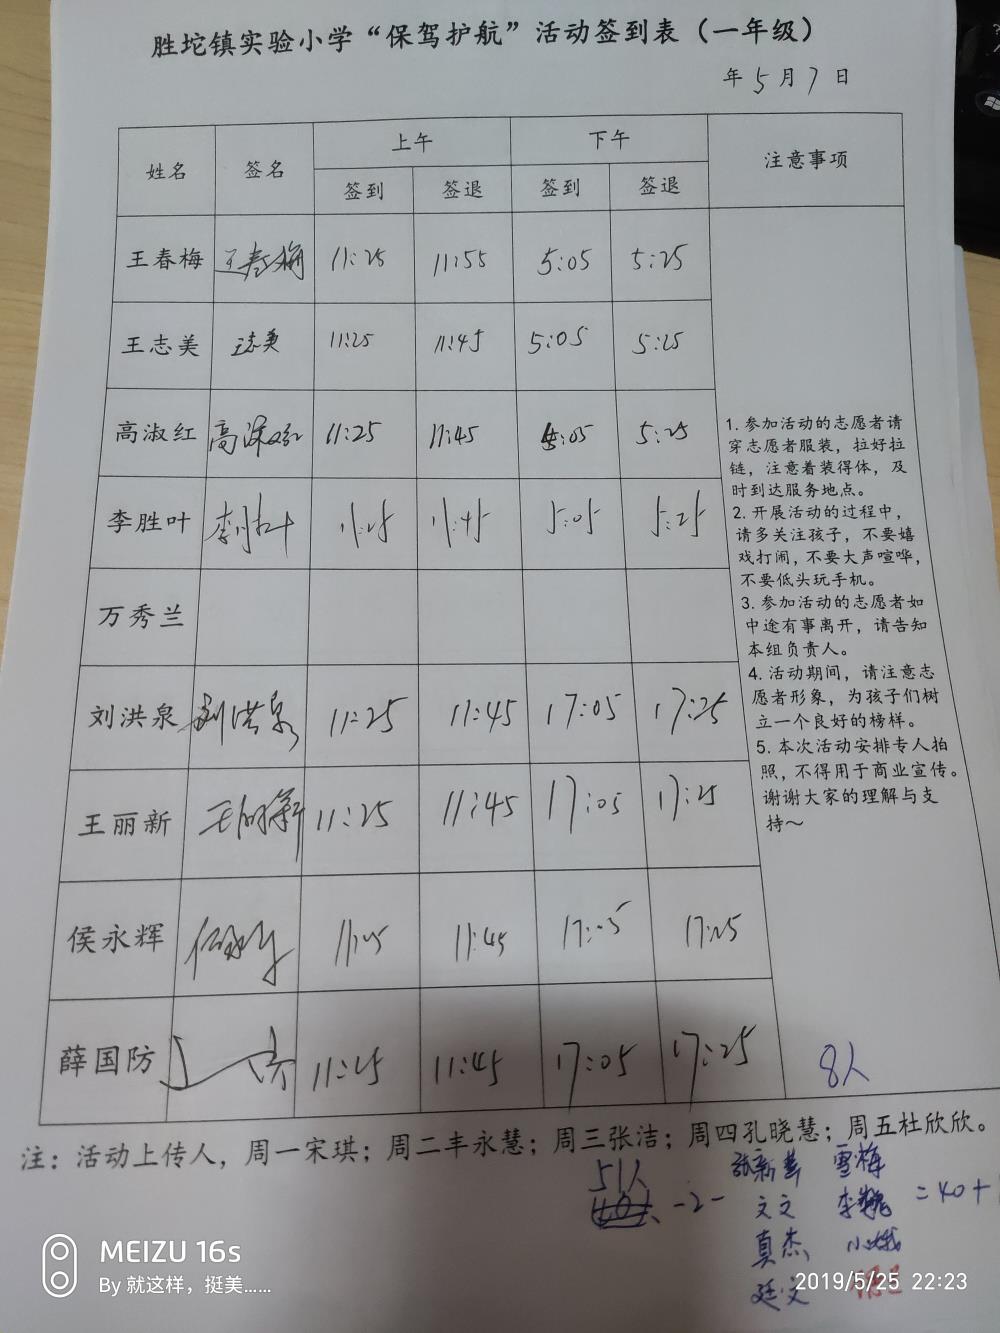 胜坨镇实验小学“保驾护航”活动签到表（一年级）
年5月7日
姓名 签名 上午 下午 注意事项
签到 签退 签到 签退
王春梅 王春梅 11:25 11:55 5:05 5:25
王志美 王志美 11:25 11:45 5:05 5:25
高淑红 高淑红 11:25 11:45 5:05 5:25
李胜叶 李胜叶 11:25 11:45 5:05 5:25
万秀兰
刘洪泉 刘洪泉 11:25 11:45 17:05 17:25
王丽新 王丽新 11:25 11:45 17:05 17:25
侯永辉 侯永辉 11:25 11:45 17:05 17:25
薛国防 11:25 11:45 17:05 17:25
1. 参加活动的志愿者请
穿志愿者服装，拉好拉
链，注意着装得体，及
时到达服务地点。
2. 开展活动的过程中，
请多关注孩子，不要嬉
戏打闹，不要大声喧哗，
不要低头玩手机。
3. 参加活动的志愿者如
中途有事离开，请告知
本组负责人。
4. 活动期间，请注意志
愿者形象，为孩子们树
立一个良好的榜样。
5. 本次活动安排专人拍
照，不得用于商业宣传。
谢谢大家的理解与支
持～
8人
注：活动上传人，周一宋琪；周二丰永慧；周三张洁；周四孔晓慧；周五杜欣欣。
51人 张新 雪梅
-2- 文文 李 =40+
真杰 小娥
廷文
MEIZU 16s
By 就这样，挺美……
2019/5/25 22:23